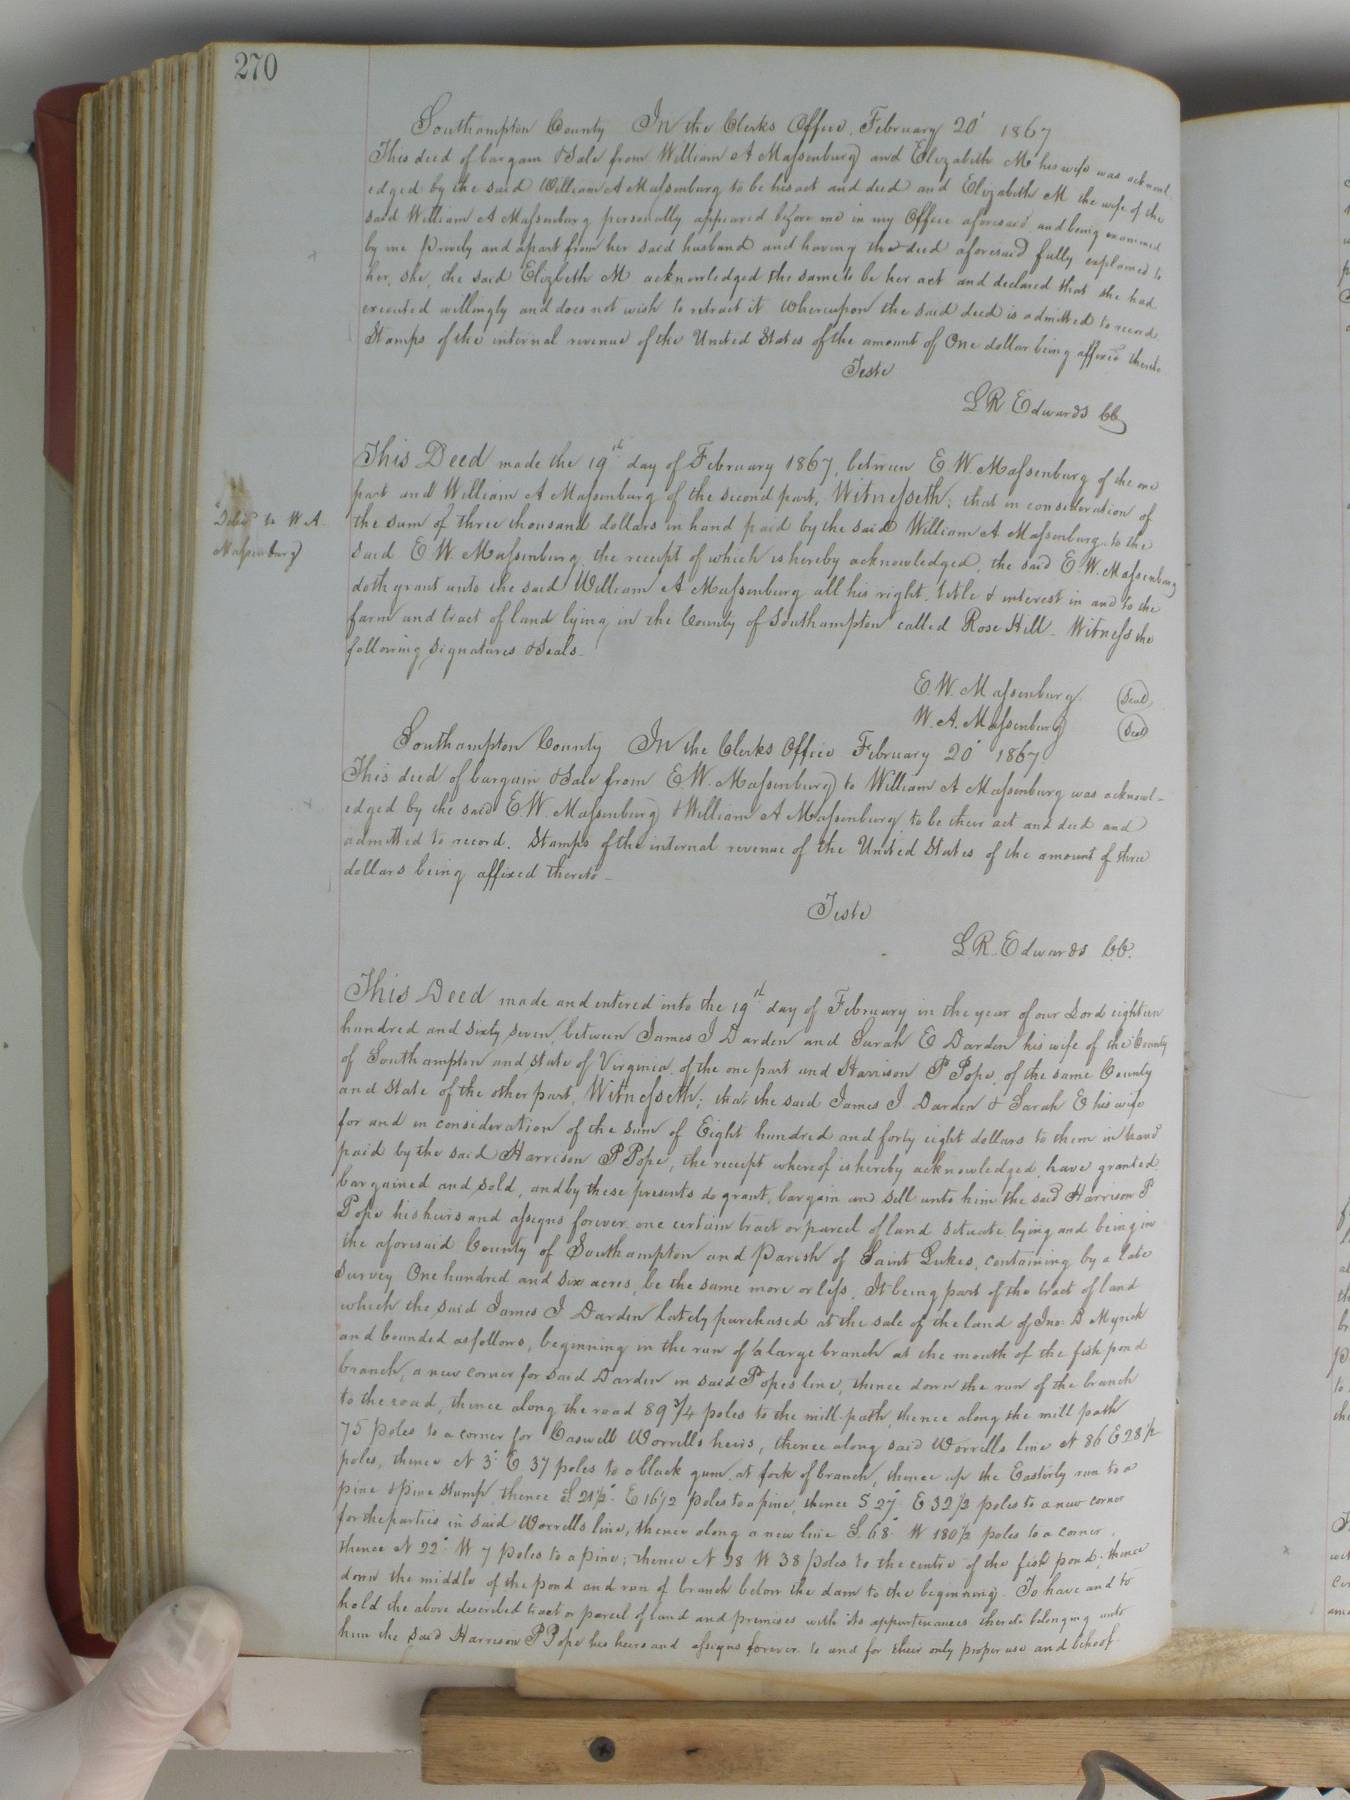 270
Southampton County In the Clerks Office, February 20' 1867
This deed of bargain & Sale from William A Massenburg and Elizabeth M his wife was acknowl-
edged by the said William A Massenburg to be his act and deed and Elizabeth M the wife of the
said William A Massenburg personally appeared before me in my Office aforesaid and being examined
by me Privily and apart from her said husband and having the deed aforesaid fully explained to
her, she, the said Elizbeth M acknowledged the same to be her act and declared that she had
executed willingly and does not wish to retract it Whereupon the said deed is admitted to record.
Stamps of the internal revenue of the United States of the amount of One dollar being affixed thereto
Teste
L R Edwards CC
This Deed made the 19th day of February 1867, between E W. Massenburg of the one
part and William A Massenburg of the second part, Witnesseth; that in consideration of
the sum of three thousand dollars in hand paid by the said William A Massenburg to the
said E W Massenburg, the receipt of which is hereby acknowledged, the said E W. Massenburg
doth grant unto the said William A Massenburg all his right, title & interest in and to the
farm and tract of land lying in the County of Southampton called Rose Hill. Witness the
following signatures & seals.
to W A
Massenburg
E. W. Massenburg (Seal)
W. A. Massenburg (Seal)
Southampton County In the Clerks Office February 20' 1867
This deed of bargain & Sale from E W. Massenburg to William A Massenburg was acknowl-
edged by the said E W. Massenburg & William A Massenburg to be their act and deed and
admitted to record. Stamps of the internal revenue of the United States of the amount of three
dollars being affixed thereto
Teste
L R. Edwards C.C.
This Deed made and entered into the 19th day of February in the year of our Lord eighteen
hundred and sixty seven, between James J Darden and Sarah E Darden his wife of the County
of Southampton and state of Virginia, of the one part and Harrison P Pope, of the same County
and State of the other part, Witnesseth; that the said James J. Darden & Sarah E his wife
for and in consideration of the sum of Eight hundred and forty eight dollars to them in hand
paid by the said Harrison P Pope, the receipt whereof is hereby acknowledged, have granted
bargained and sold, and by these presents do grant, bargain and sell unto him the said Harrison P.
Pope his heirs and assigns forever one certain tract or parcel of land situate lying and being in
the aforesaid County of Southampton and Parish of Saint Lukes, containing by a late
survey One hundred and six acres, be the same more or less. It being part of the tract of land
which the said James J Darden lately purchased at the sale of the land of Jno. D Myrick
and bounded as follows, beginning in the run of a large branch at the mouth of the fish pond
branch, a new corner for said Darden in said Popes line, thence down the run of the branch
to the road, thence along the road 89 3/4 poles to the mill path, thence along the mill path
75 poles to a corner for Caswell Worrells heirs, thence along said Worrells line N 86 E 28 1/2
poles, thence N 3° E 37 poles to a black gum at fork of branch, thence up the Easterly run to a
pine & pine stump, thence S 21 1/2° E 16 1/2 poles to a pine, thence S 27° E 32 1/2 poles to a new corner
for the parties in said Worrells line, thence along a new line S. 68° W 180 1/2 poles to a corner,
thence N 22° W 7 poles to a pine; thence N 28 W 38 poles to the centre of the fish pond; thence
down the middle of the pond and run of branch below the dam to the beginning. To have and to
hold the above described tract or parcel of land and premises with its appurtenances thereto belonging unto
him the said Harrison P Pope his heirs and assigns forever to and for their only proper use and behoof